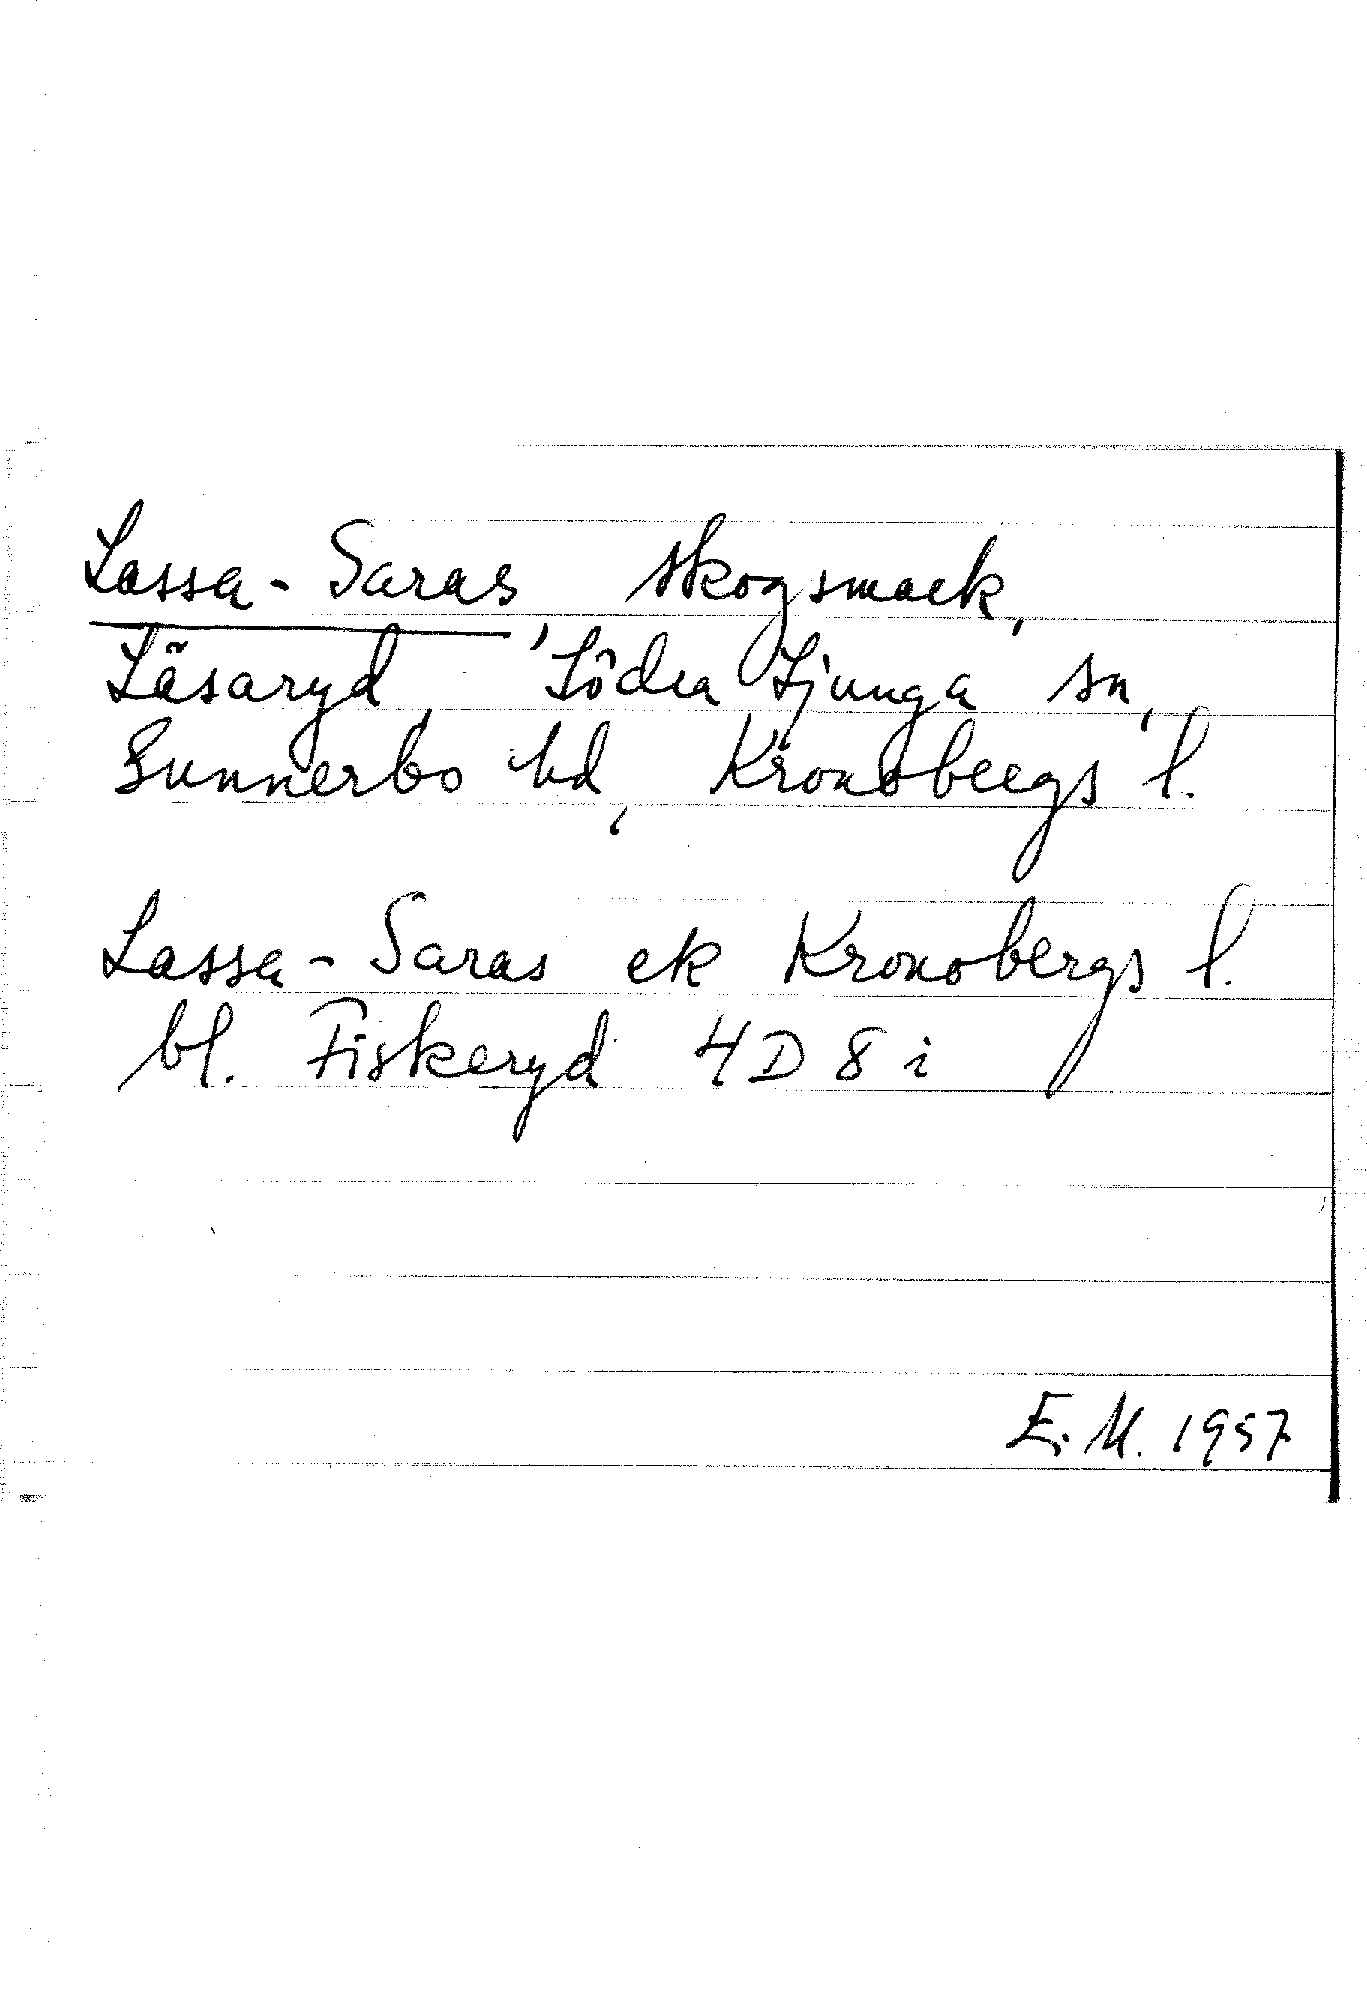 Lassa-Saras, skogsmark,
Läsaryd, Södra Ljunga sn,
Sunnerbo hd, Kronobergs l.
Lassa-Saras ek Kronobergs l.
bl. Fiskeryd 4D 8 i
E.M. 1957